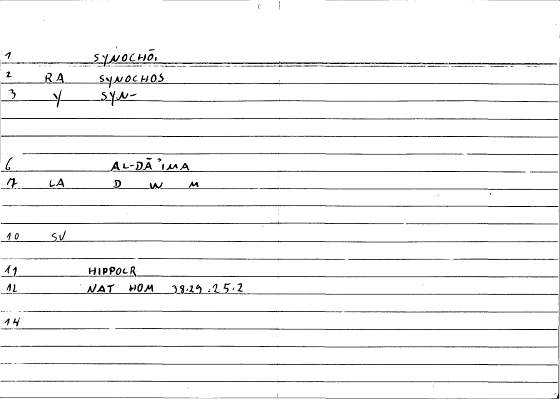 1 SYNOCHŌ,
2 RA SYNOCHOS
3 Y SYN-
6 AL-DĀʾIMA
7 LA D W M
10 SV
11 HIPPOCR
12 NAT HOM 38.29.25.2
14